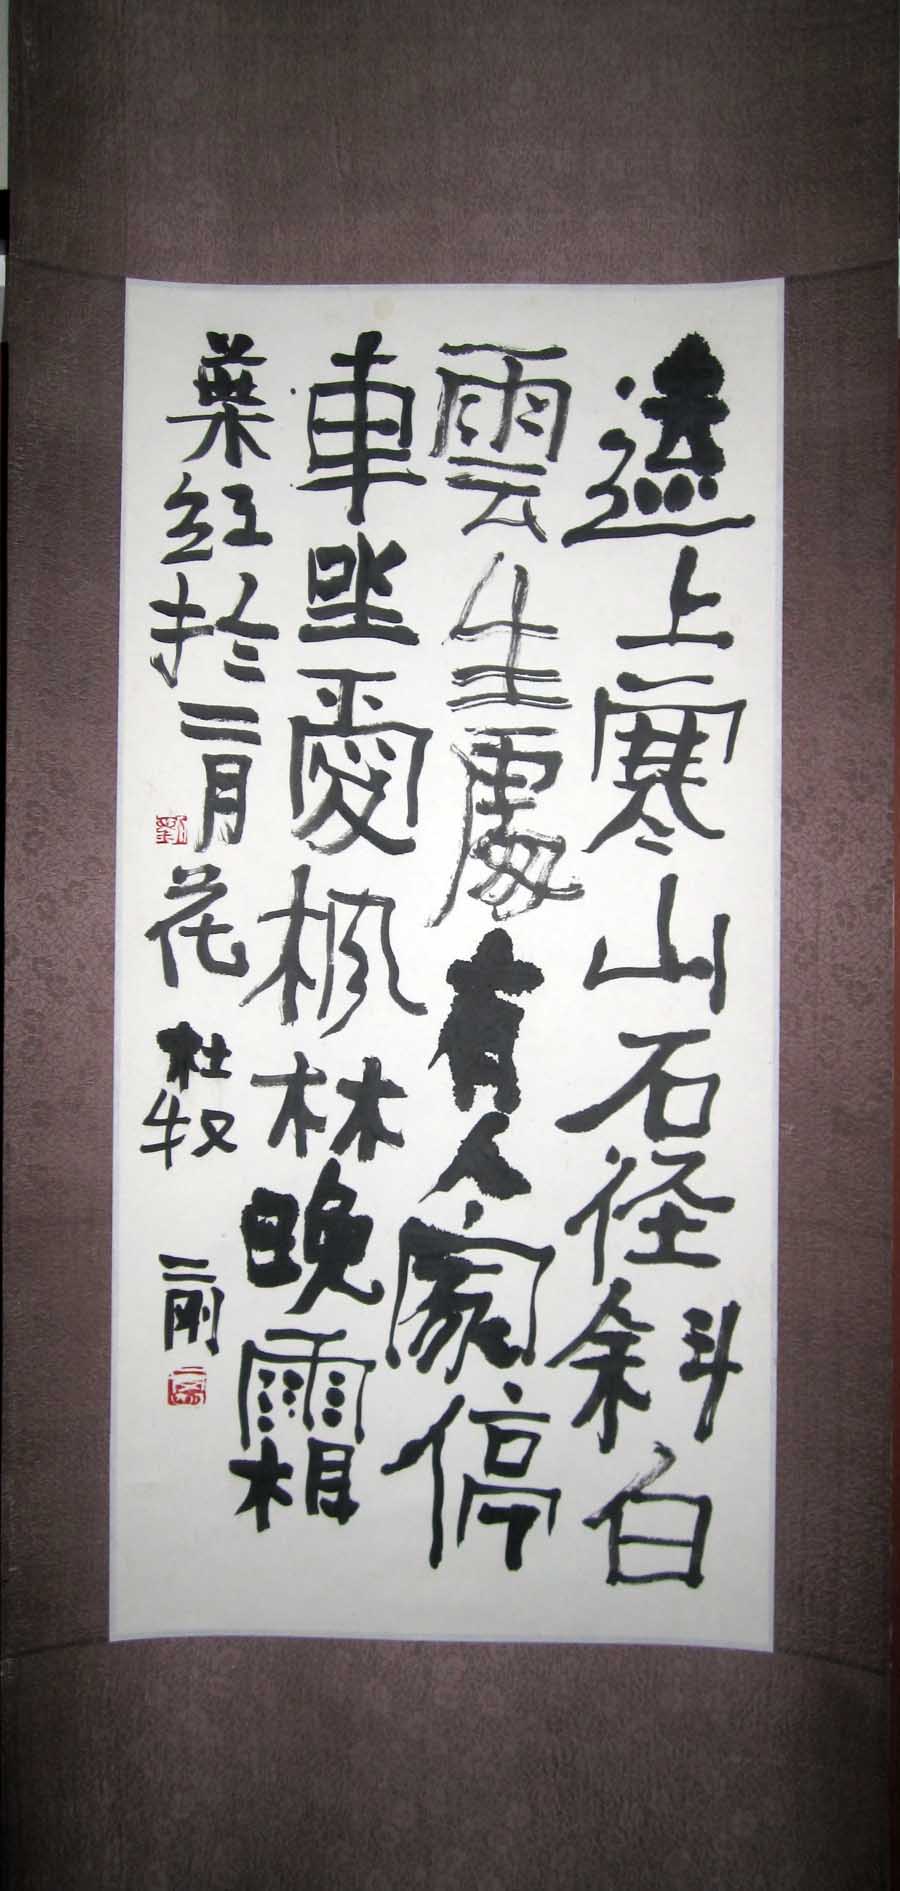 遠上寒山石径斜白
雲生處有人家停
車坐愛楓林晚霜
葉紅於二月花 杜牧 二刚
劉